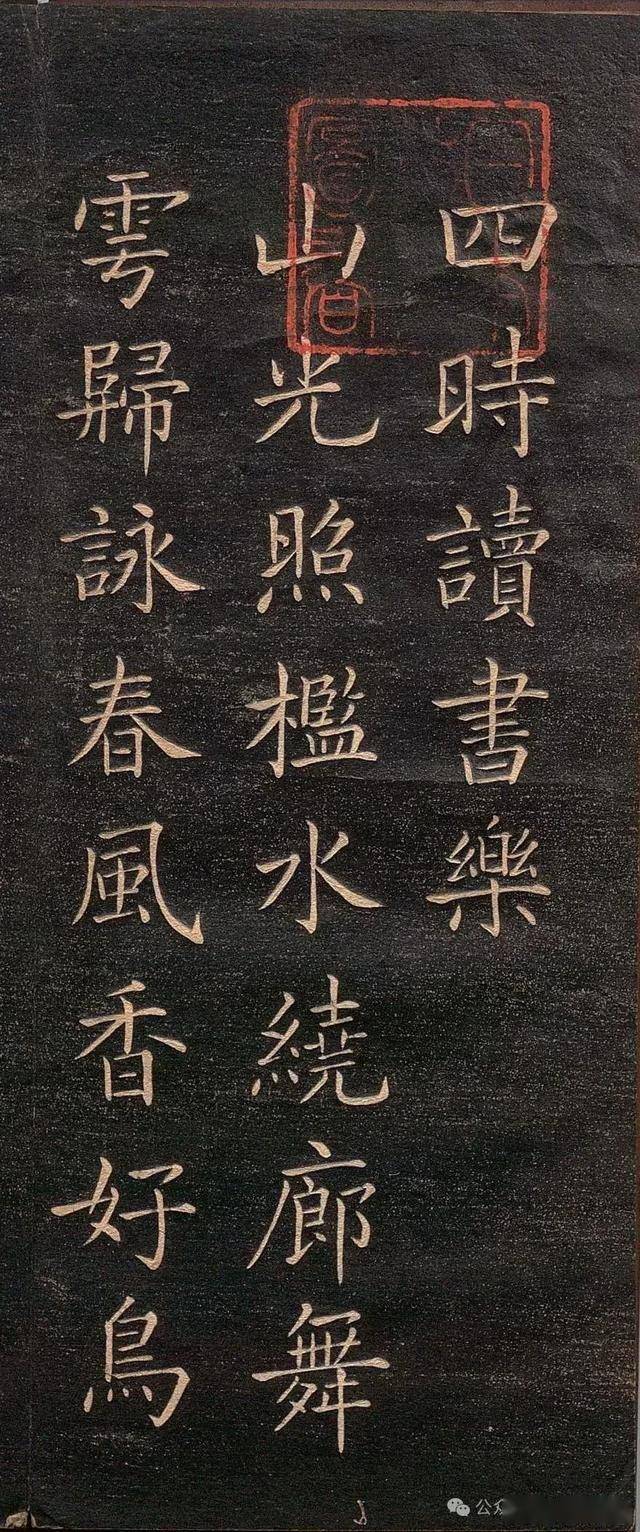 四時讀書樂
山光照檻水繞廊舞
雩歸詠春風香好鳥
公众